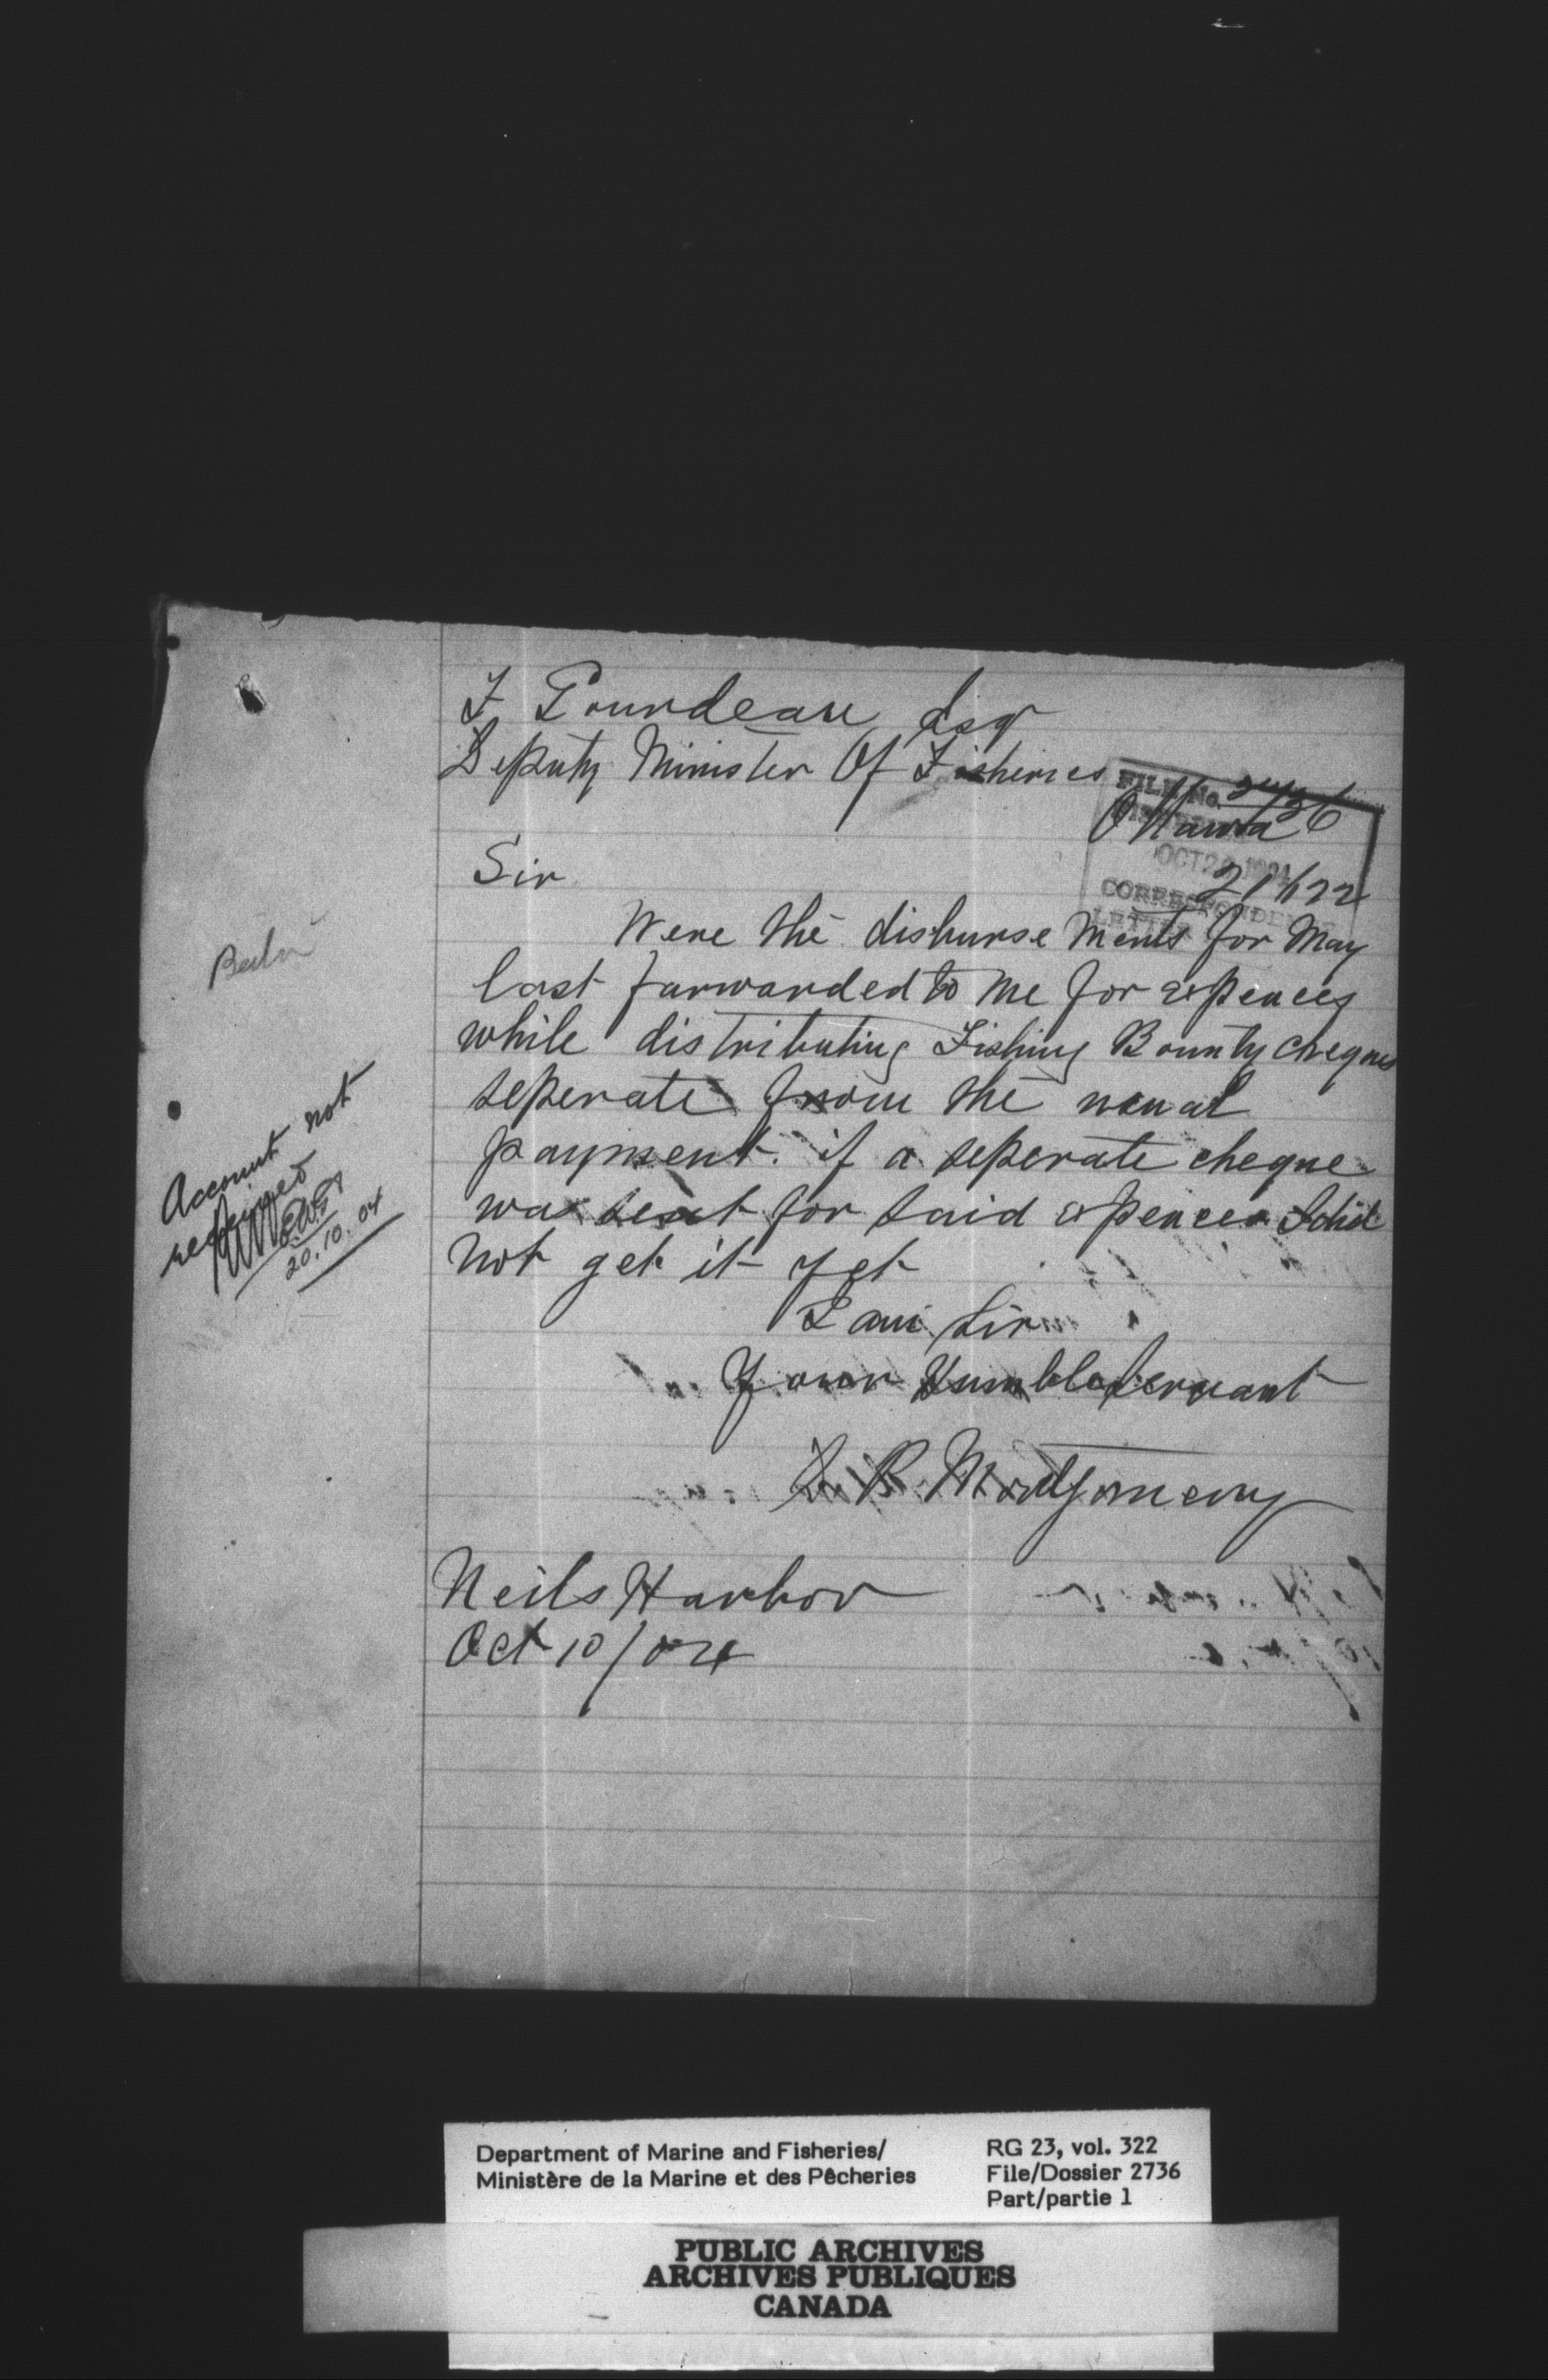 F Gourdeau Esqr
Deputy Minister Of Fisheries
FILE No. 2736
Ottawa
OCT 20 1904
21622
CORRESPONDENCE
Sir
Were the disburse ments for May
last forwarded to me for expences
while distributing Fishing Bounty cheques
seperate from the usual
payment. if a seperate cheque
was sent for said expences I did
not get it yet
I am Sir
Your Humble Servant
R Montgomery
Neils Harbor
Oct 10/04
Account not
received
20.10.04
Department of Marine and Fisheries/
Ministère de la Marine et des Pêcheries
RG 23, vol. 322
File/Dossier 2736
Part/partie 1
PUBLIC ARCHIVES
ARCHIVES PUBLIQUES
CANADA